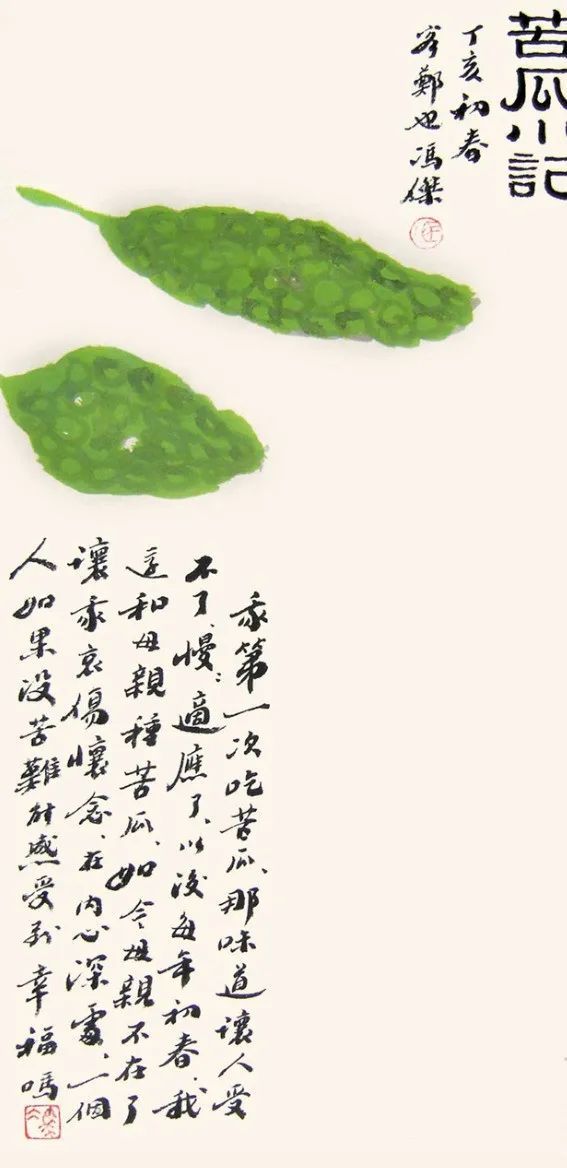 苦瓜小記
丁亥初春
客鄭也馮傑
我第一次吃苦瓜、那味道讓人受
不了、慢:適應了、以後每年初春、我
還和母親種苦瓜、如今母親不在了
讓我哀傷懷念、在内心深處、一個
人如果没苦難能感受到幸福嗎